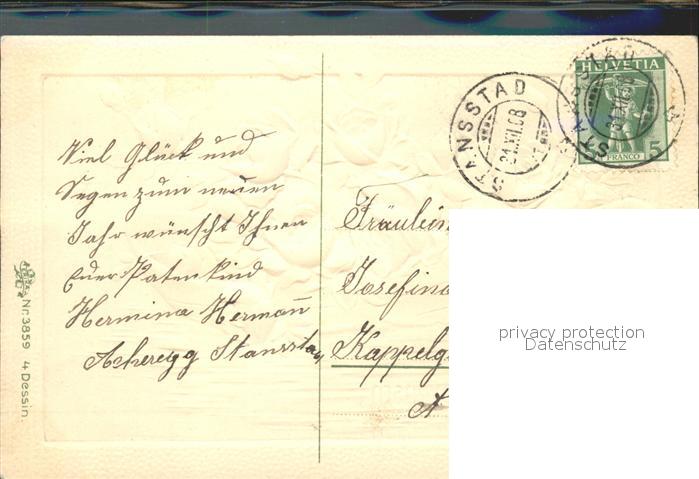 HELVETIA
FRANCO 5
STANSSTAD
31.XII.08
STANSSTAD
31.XII.08
Viel Glück und
Segen zum neuen
Jahr wünscht Ihnen
Euer Patenkind
Hermina Hermann
Acheregg Stansstad
Fräulein
Josefina
Kappelg
A
privacy protection
Datenschutz
Nr. 3859 4 Dessin.